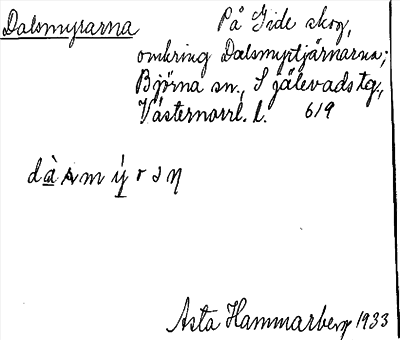 Dalsmyrarna På Gide skog,
omkring Dalsmyrtjärnarna;
Björna sn., Själevads tg.,
Västernorrl. l. 619
Asta Hammarberg 1933